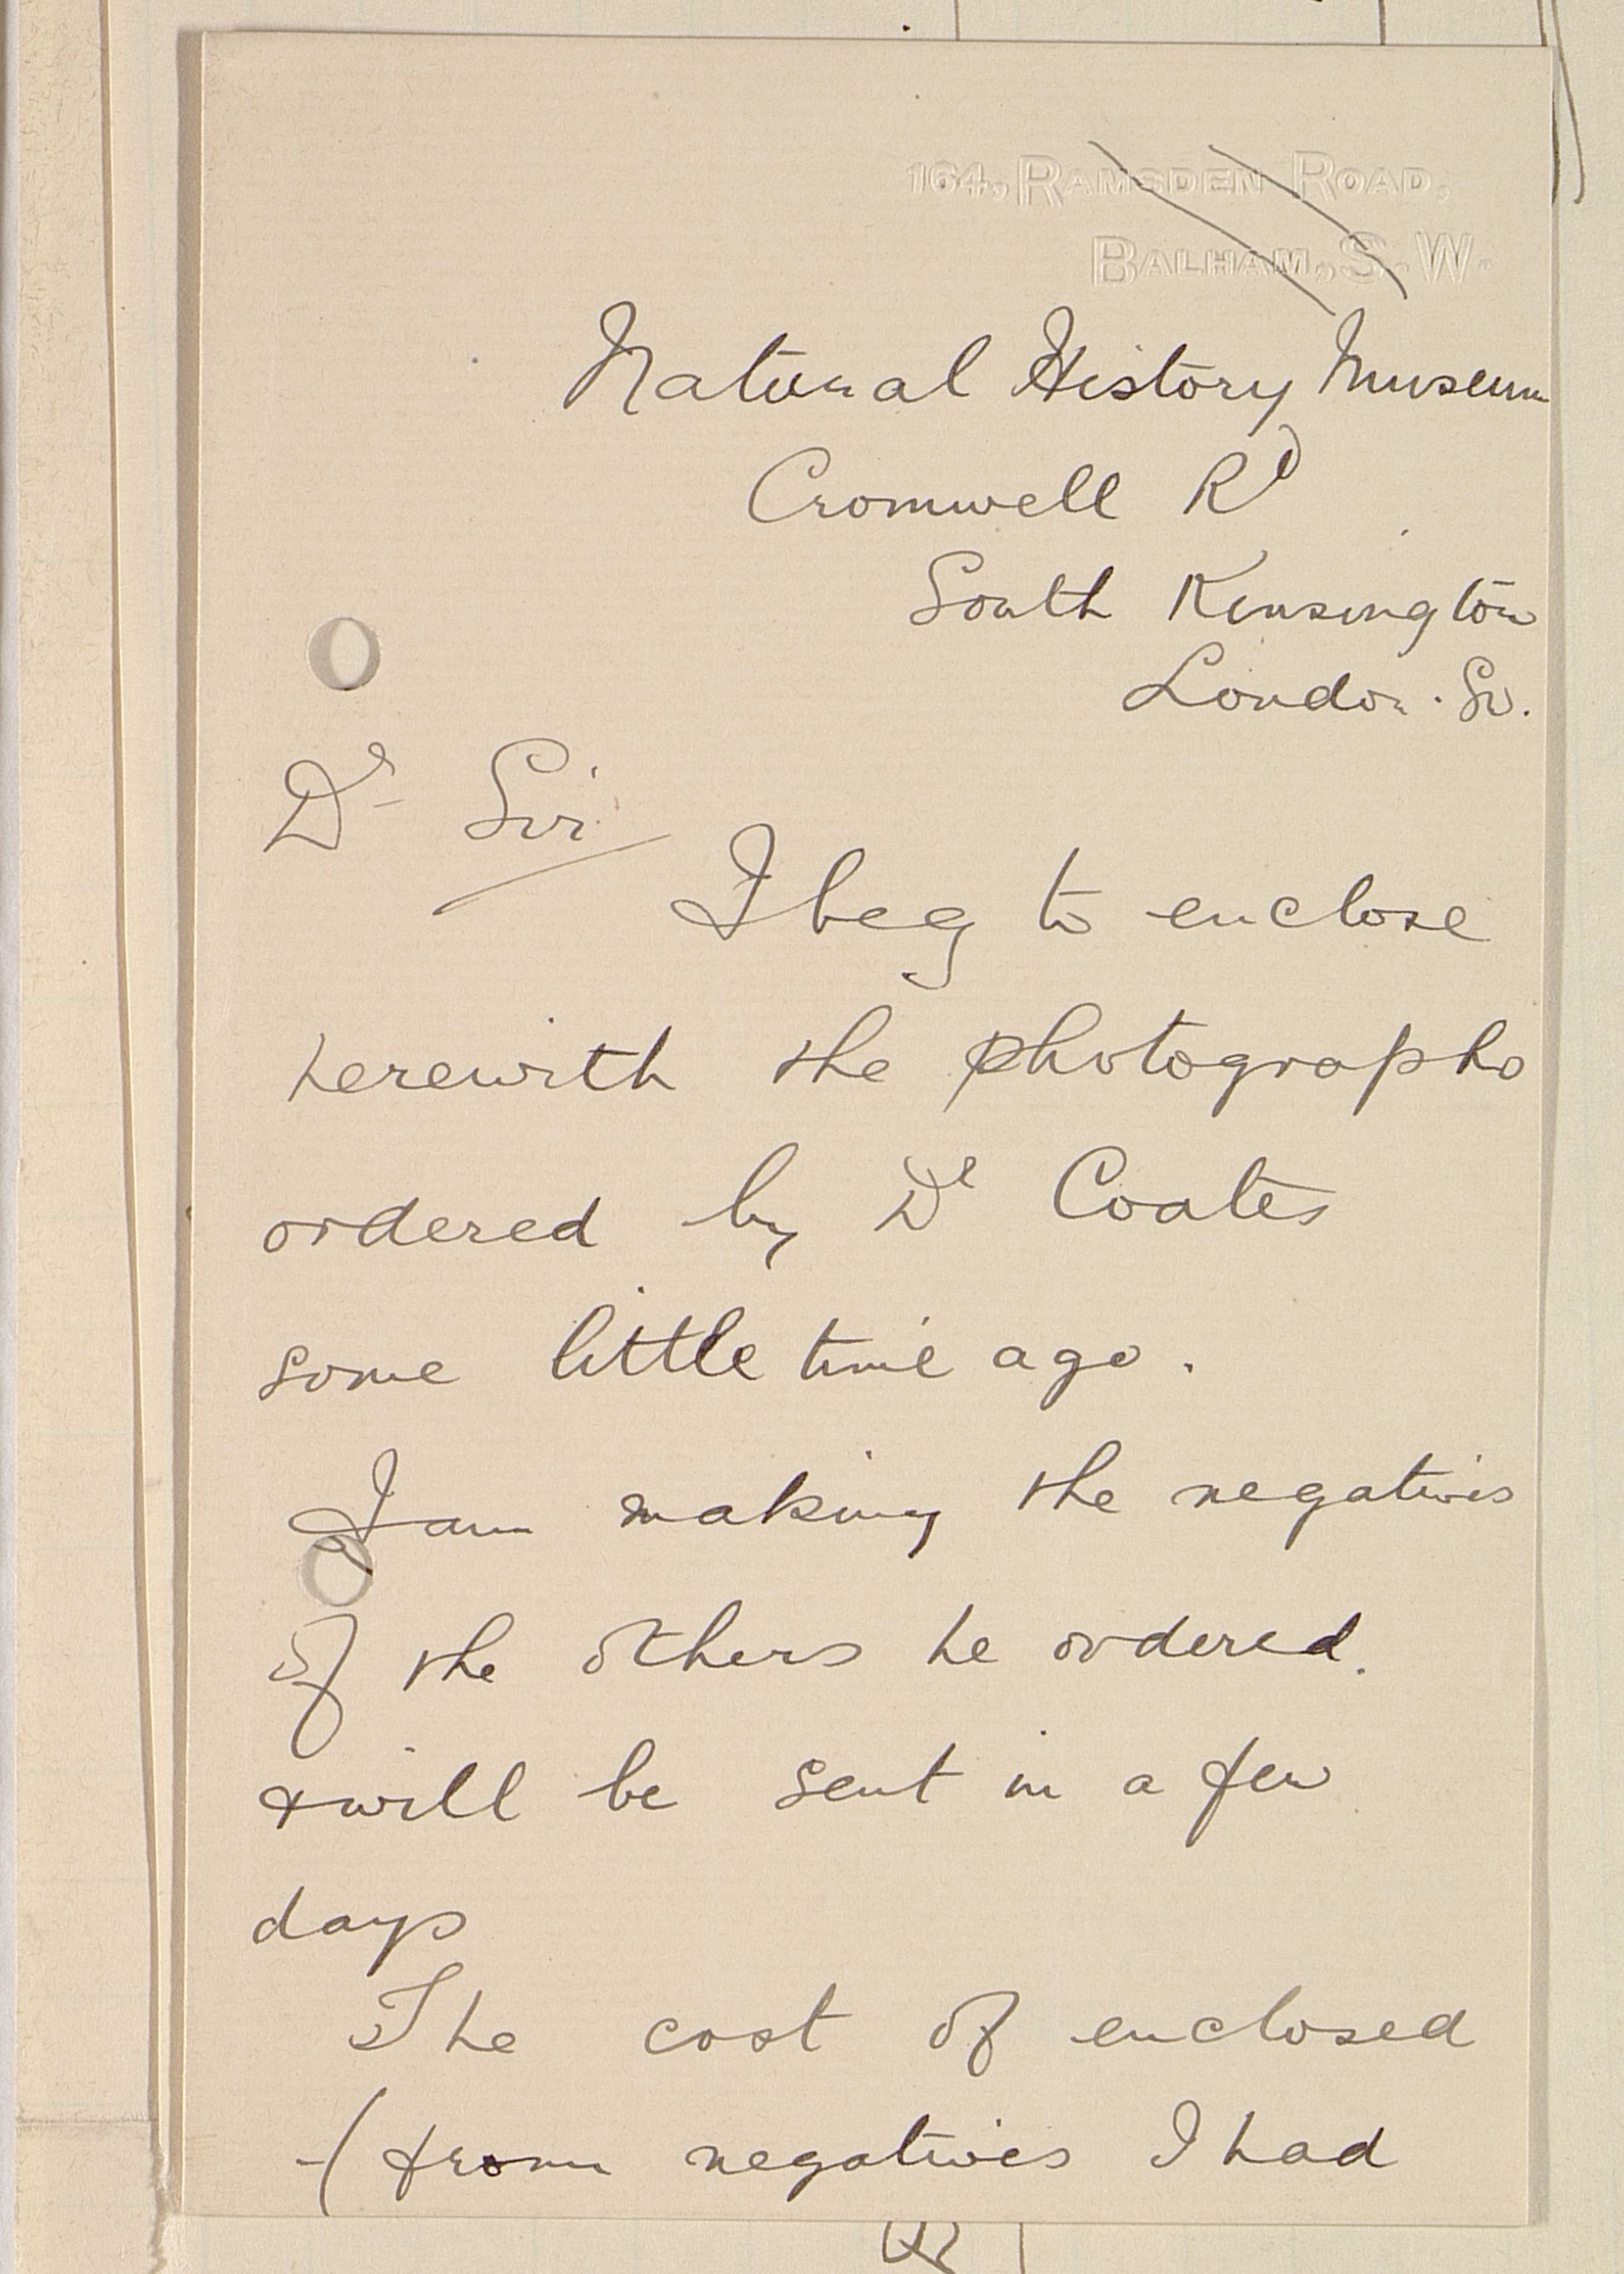 164, RAMSDEN ROAD,
BALHAM, S.W.
Natural History Museum
Cromwell Rd
South Kensington
London. Sw.
Dr Sir
I beg to enclose
herewith the photographs
ordered by Dr Coates
some little time ago.
I am making the negatives
of the others he ordered.
& will be sent in a few
days
The cost of enclosed
-(from negatives I had